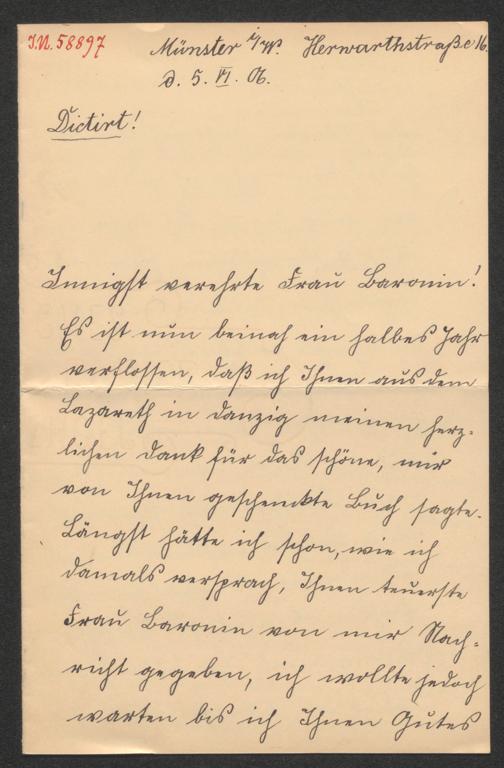 I.N. 58897
Münster i/W. Herwarthstraße 16.
d. 5. VI. 06.
Dictirt!
Innigst verehrte Frau Baronin!
Es ist nun beinah ein halbes Jahr
verflossen, daß ich Ihnen aus dem
Lazareth in Danzig meinen herz-
lichen Dank für das schöne, mir
von Ihnen geschenkte Buch sagte.
Längst hätte ich schon, wie ich
damals versprach, Ihnen teuerste
Frau Baronin von mir Nach-
richt gegeben, ich wollte jedoch
warten bis ich Ihnen Gutes